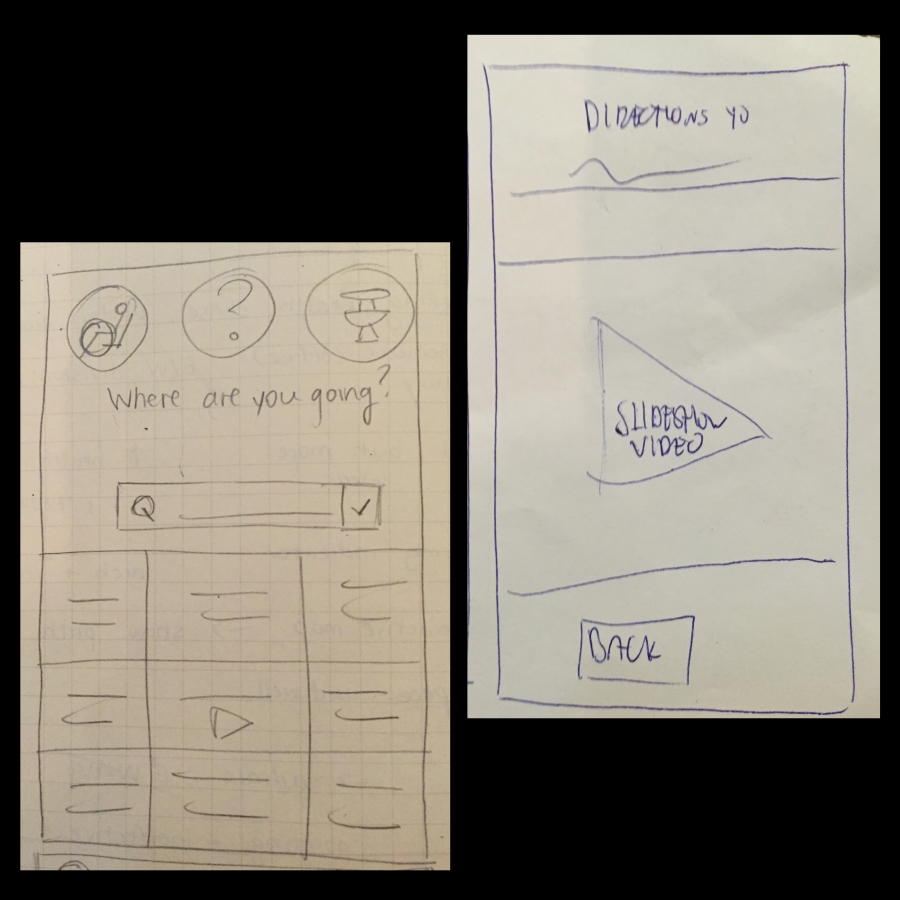 ?
Where are you going?
DIRECTIONS YO
SLIDESHOW
VIDEO
BACK